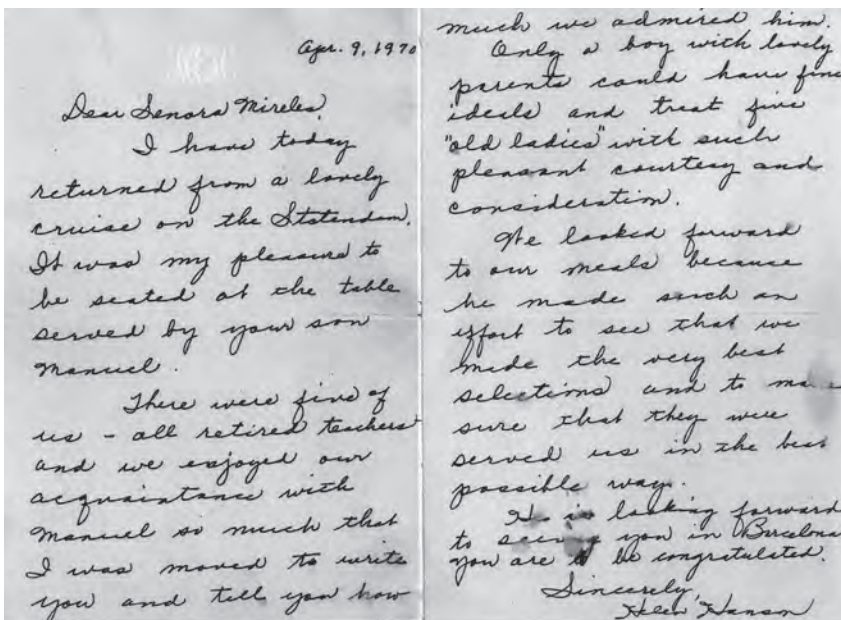 Apr. 9, 1970
Dear Senora Mireles,
I have today
returned from a lovely
cruise on the Statendam.
It was my pleasure to
be seated at the table
served by your son
Manuel.
There were five of
us - all retired teachers
and we enjoyed our
acquaintance with
Manuel so much that
I was moved to write
you and tell you how
much we admired him.
Only a boy with lovely
parents could have fine
ideals and treat five
"old ladies" with such
pleasant courtesy and
consideration.
We looked forward
to our meals because
he made such an
effort to see that we
made the very best
selections and to make
sure that they were
served us in the best
possible way.
He is looking forward
to seeing you in Barcelona
you are to be congratulated.
Sincerely,
Helen Hanson